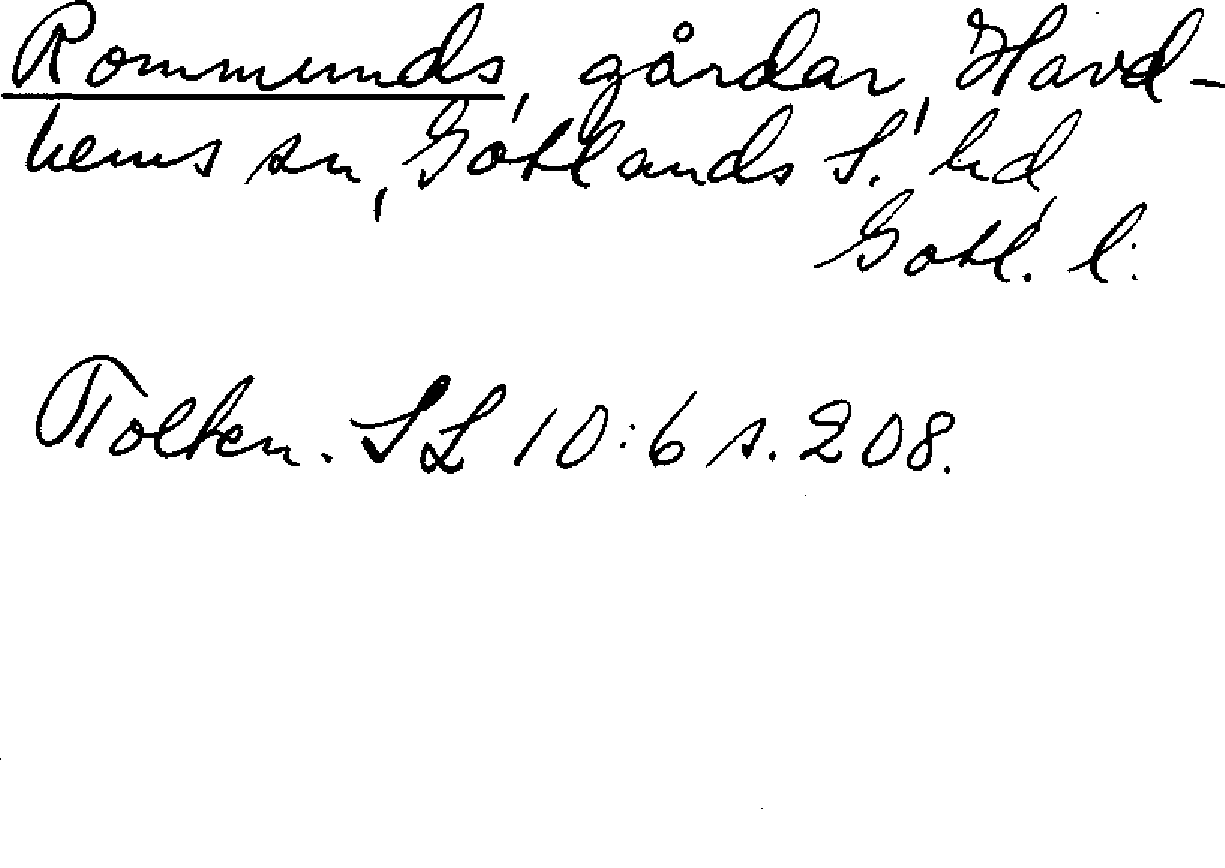 Rommunds, gårdar, Havd-
hems sn, Gotlands S. hd,
Gotl. l.
Tolken. SL 10:6 s. 208.